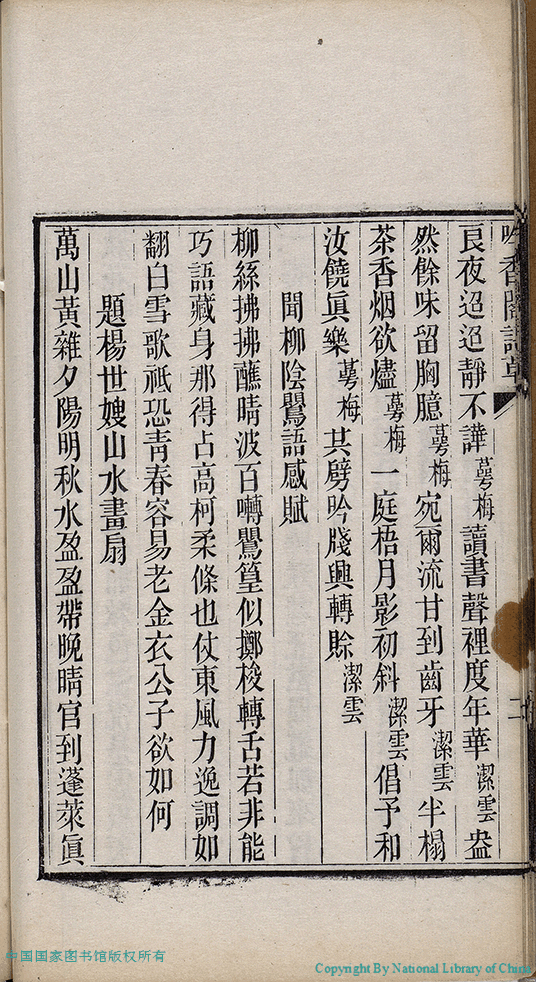 吟香閣詩草
二
良夜迢迢靜不譁蕚梅讀書聲裡度年華潔雲盎
然餘味留胸臆蕚梅宛爾流甘到齒牙潔雲半榻
茶香烟欲燼蕚梅一庭梧月影初斜潔雲倡予和
汝饒眞樂蕚梅共劈吟牋興轉賒潔雲
聞柳陰鸎語感賦
柳絲拂拂蘸晴波百囀鸎篁似擲梭轉舌若非能
巧語藏身那得占高柯柔條也仗東風力逸調如
翻白雪歌祇恐靑春容易老金衣公子欲如何
題楊世嫂山水畫扇
萬山黃雜夕陽明秋水盈盈帶晚晴官到蓬萊眞
中国国家图书馆版权所有
Copyright By National Library of China